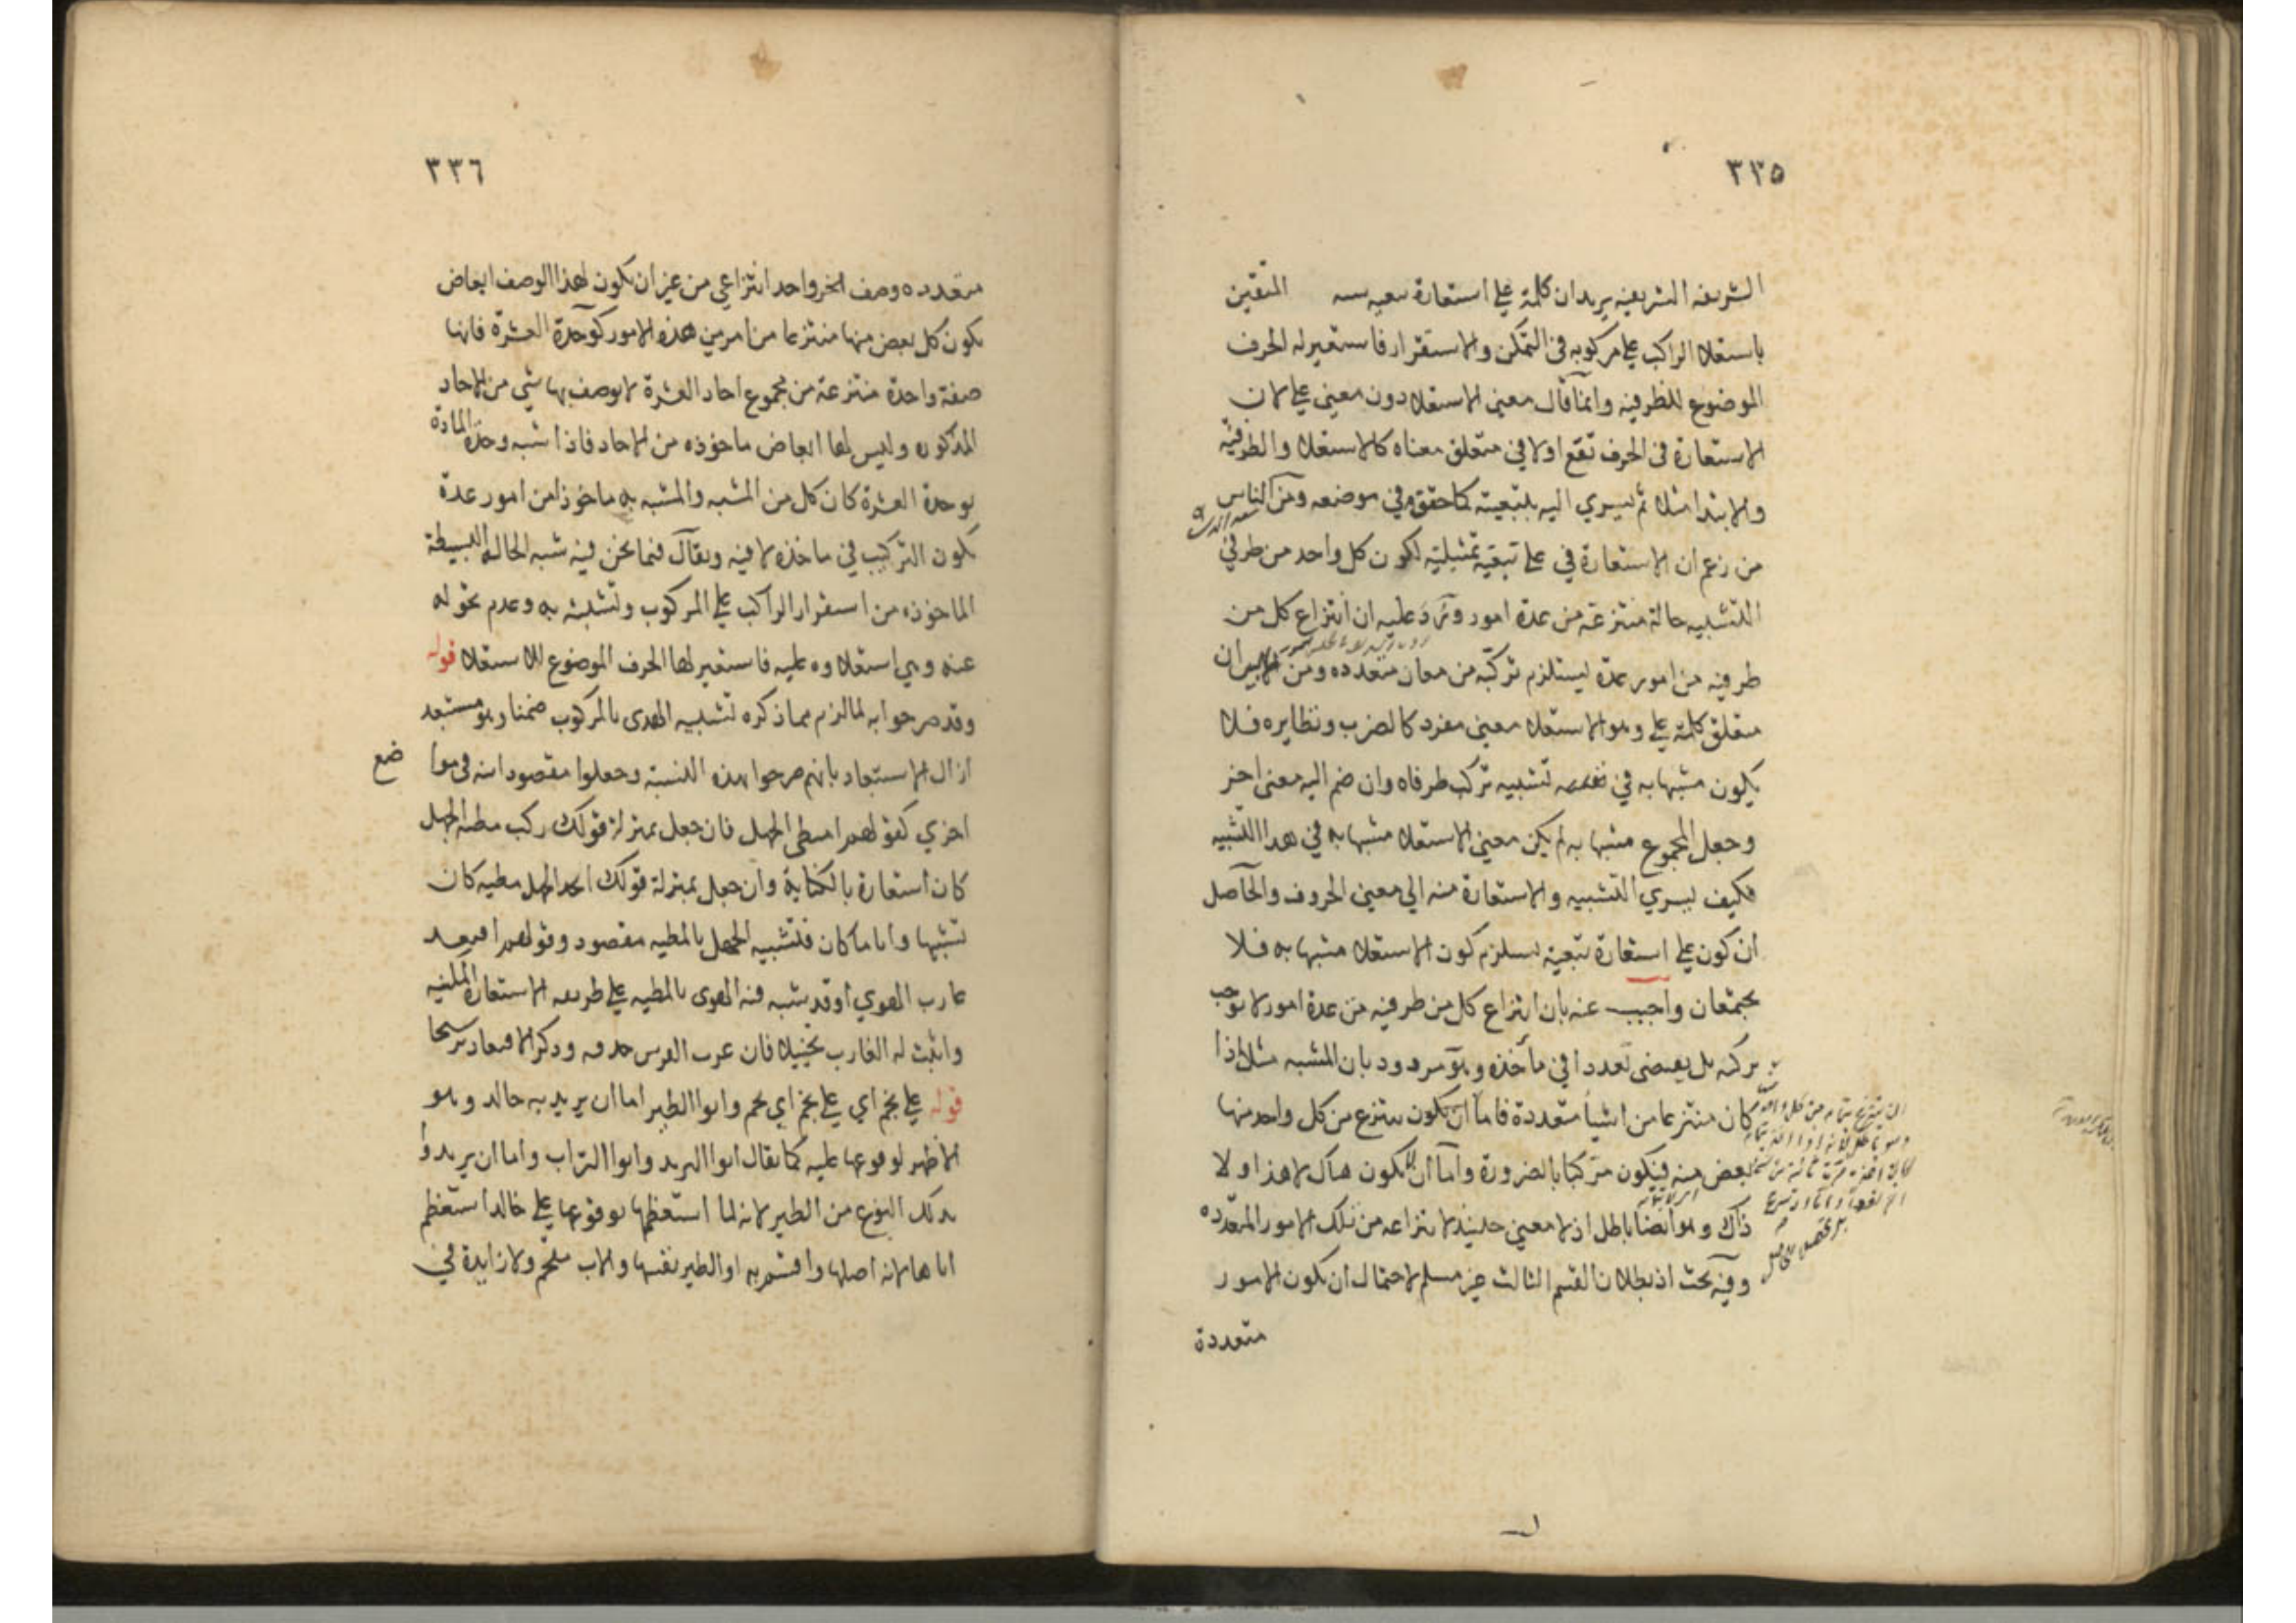 ٣٣٥
الشريفه الشريفيه يريد ان كلمة علي استعارة تبعيه المتقين
باستعلا الراكب علي مركوبه في التمكن والاستقرار فاستعير له الحرف
الموضوع للظرفيه وانما قال معني الاستعلا دون معني علي لان
الاستعارة في الحرف تقع اولا في متعلق معناه كالاستعلا والظرفيه
والابتدا مثلا ثم يسري اليه بتبعيته كما حقق في موضعه ومن الناس
من زعم ان الاستعارة في علي تبعية تمثيلية لكون كل واحد من طرفي
التشبيه حالة منتزعة من عدة امور ويرد عليه ان انتزاع كل من
طرفيه من امور عدة يستلزم تركبه من معان متعدده ومن البين ان
متعلق كلمة علي وهو الاستعلا معني مفرد كالضرب ونظايره فلا
يكون مشبها به في تشبيه تركب طرفاه وان ضم اليه معني اخر
وجعل المجموع مشبها به لم يكن معني الاستعلا مشبها به في هذا التشبيه
فكيف يسري التشبيه والاستعارة منه الي معني الحروف والحاصل
ان كون علي استعارة تبعية يستلزم كون الاستعلا مشبها به فلا
يجتمعان واجيب عنه بان انتزاع كل من طرفيه من عدة امور لا يوجب
تركبه بل يقتضي تعددا في مأخذه وهو مردود بان المشبه مثلا اذا
كان منتزعا من اشيا متعددة فاما ان يكون ينتزع من كل واحد منها
بعض منه فيكون مركبا بالضرورة واما ان لا يكون هناك لا هذا ولا
ذاك وهو ايضا باطل اذ لا معني حينيذ لانتزاعه من تلك الامور المتعدده
وفيه بحث اذ بطلان القسم الثالث غير مسلم لاحتمال ان يكون لامور
متعددة
٣٣٦
متعدده وصف اخر واحد انتزاعي من غير ان يكون لهذا الوصف ابعاض
يكون كل بعض منها منتزعا من امر من هذه الامور كوحدة العشرة فانها
صفة واحدة منتزعة من مجموع احاد العشرة لا يوصف بها شي من الاحاد
المذكوره وليس لها ابعاض ماخوذه من الاحاد فاذا شبه وحدة المادة
بوحدة العشرة كان كل من المشبه والمشبه به ماخوذا من امور عدة
يكون التركيب في ماخذه لا فيه ويقال فيما نحن فيه شبه الحاله البسيطة
الماخوذه من استقرار الراكب علي المركوب وتشبثه به وعدم تحوله
عنه وهي استعلاوه عليه فاستعير لها الحرف الموضوع للاستعلا قوله
وقد صرحوا به لما لزم مما ذكره تشبيه الهدى بالمركوب ضمنا وهو مستبعد
ازال الاستبعاد بانهم صرحوا بهذه النسبة وجعلوا مقصودا منه في مواضع
اخري كقولهم امتطى الجهل فان جعل بمنزلة قولك ركب مطية الجهل
كان استعارة بالكناية وان جعل بمنزلة قولك اتخذ الجهل مطيه كان
تشبيها وايا ما كان فتشبيه الجهل بالمطيه مقصود وقولهم اقتعد
غارب الهوي اوقد شبه فيه الهوى بالمطيه علي طريقة الاستعارة المكنيه
واثبت له الغارب تخييلا فان عرب الفرس حدفه وذكر الاقتعاد ترشيحا
قوله علي بخم اي علي بخم اي لحم وابوا الطير اما ان يريد به خالد وهو
الاظهر لوقوعها عليه كما يقال ابوا البريد وابوا التراب واما ان يريدوا
بدلك النوع من الطير لانه لما استعظمها بوقوعها علي خالد استعظم
اباها لانه اصلها واقسم به او الطير نفسها والاب ملحم ولا زايدة في